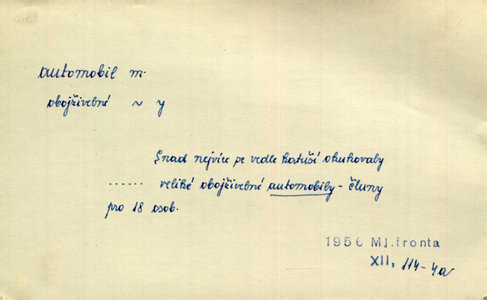 automobil m.
obojživelné ~ y
Snad nejvíce se vedle kartuší okukovaly
...... veliké obojživelné automobily - čluny
pro 18 osob.
1956 Ml.fronta
XII, 114-4a